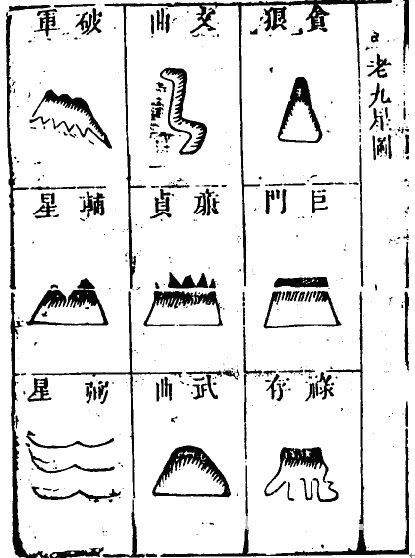 老九星圖
貪狼
巨門
祿存
文曲
廉貞
武曲
破軍
輔星
弼星